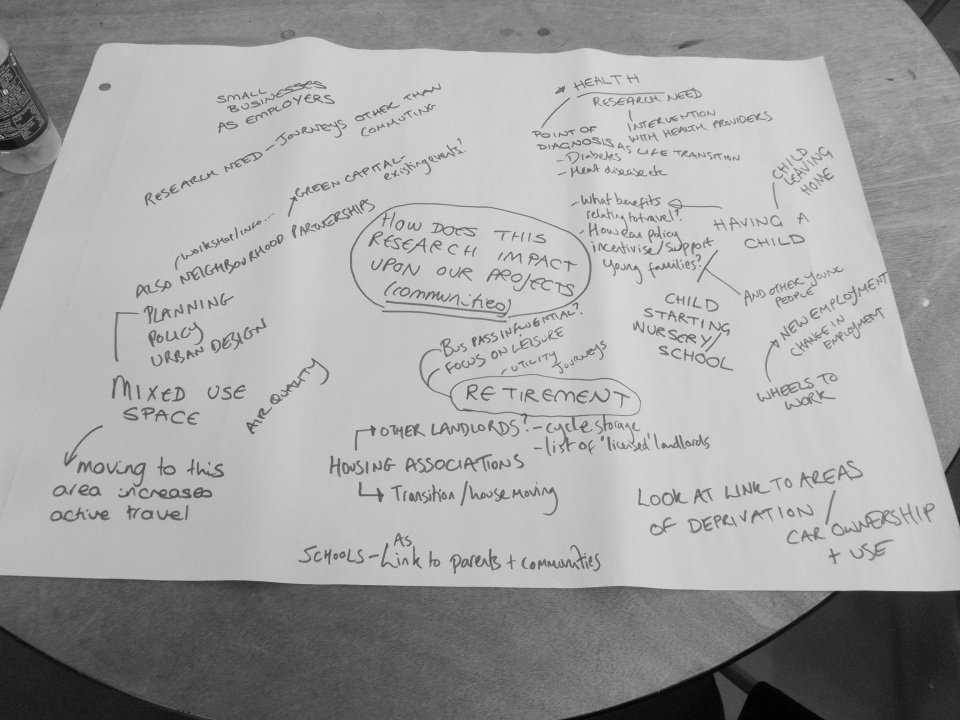 SMALL
BUSINESSES
AS EMPLOYERS
RESEARCH NEED - JOURNEYS OTHER THAN
COMMUTING
GREEN CAPITAL-
existing events?
(workshop/info...
ALSO NEIGHBOURHOOD PARTNERSHIPS
PLANNING
POLICY
URBAN DESIGN
MIXED USE
SPACE
moving to this
area increases
active travel
AIR QUALITY
HOW DOES THIS
RESEARCH IMPACT
UPON OUR PROJECTS
(communities)
BUS PASS INFLUENTIAL?
FOCUS ON LEISURE
- UTILITY JOURNEYS
RETIREMENT
OTHER LANDLORDS? - cycle storage
- list of 'licensed' landlords
HOUSING ASSOCIATIONS
Transition/house moving
SCHOOLS - AS Link to parents + communities
* HEALTH
RESEARCH NEED
INTERVENTION
WITH HEALTH PROVIDERS
POINT OF
DIAGNOSIS AS LIFE TRANSITION
- Diabetes
- Heart disease etc
CHILD
LEAVING
HOME
HAVING A
CHILD
- What benefits
relating to travel?
- How can policy
incentivise/support
young families?
CHILD
STARTING
NURSERY/
SCHOOL
AND OTHER YOUNG
PEOPLE
NEW EMPLOYMENT
CHANGE IN
EMPLOYMENT
WHEELS TO
WORK
LOOK AT LINK TO AREAS
OF DEPRIVATION /
CAR OWNERSHIP
+ USE